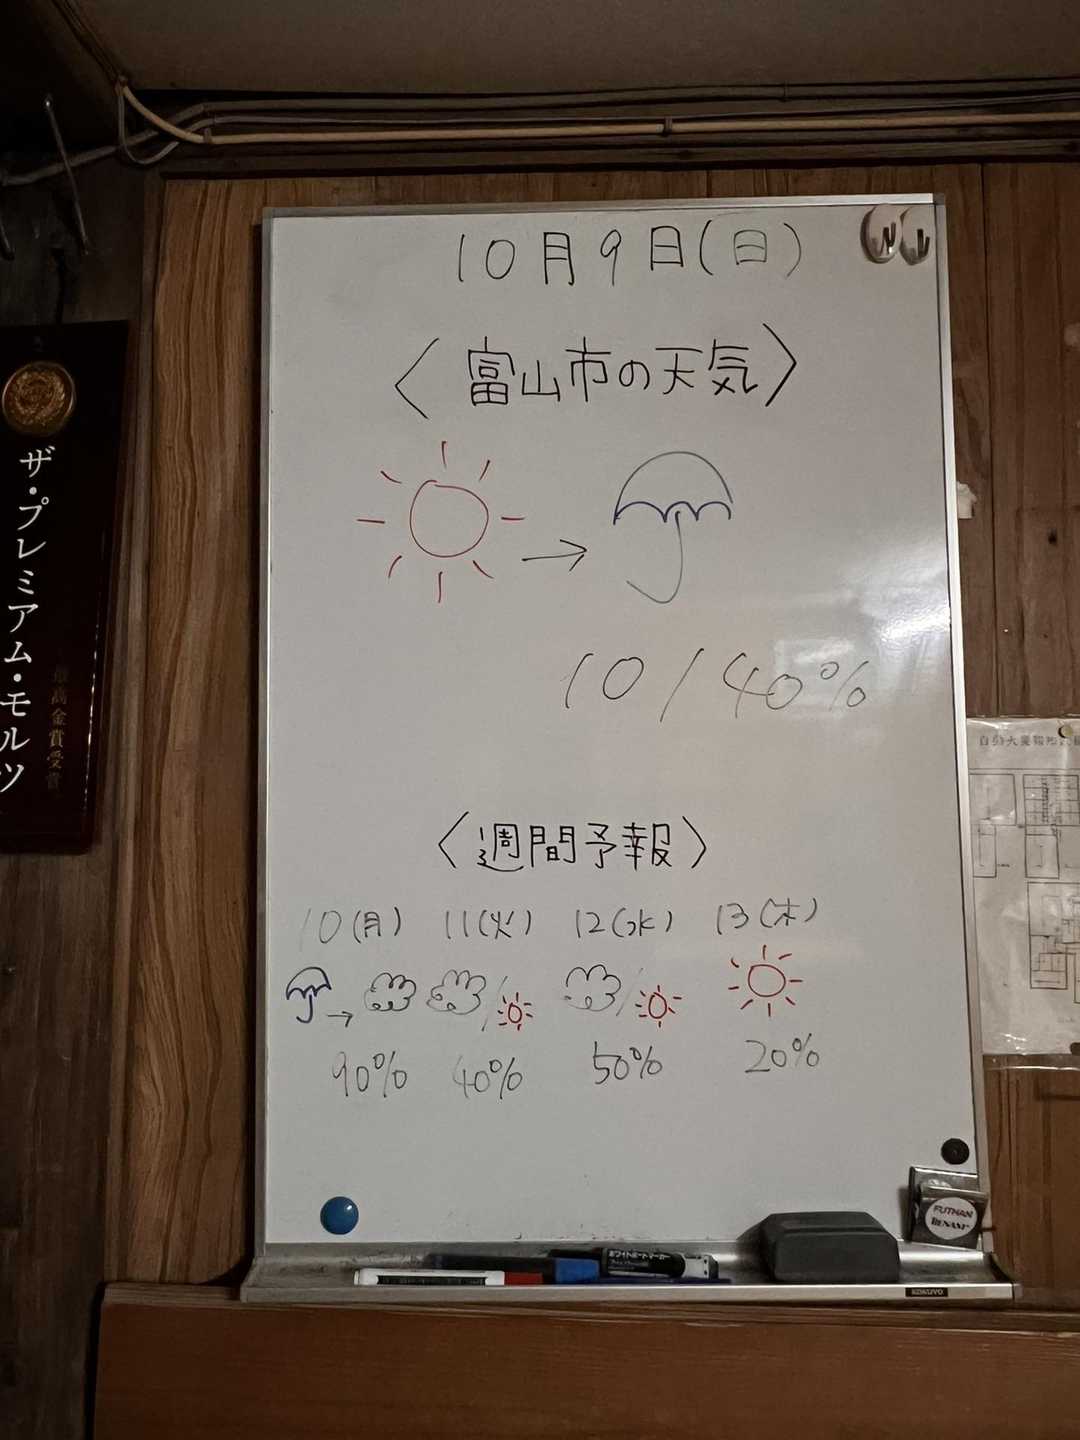 10月9日(日)
〈富山市の天気〉
→
10/40%
〈週間予報〉
10(月) 11(火) 12(水) 13(木)
→ / /
90% 40% 50% 20%
ザ・プレミアム・モルツ
最高金賞受賞
ホワイトボードマーカー
KOKUYO